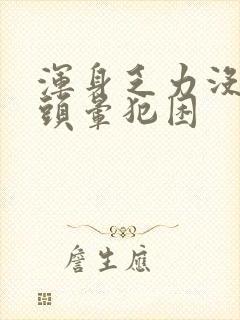 渾身乏力沒
頭暈犯困
詹生應